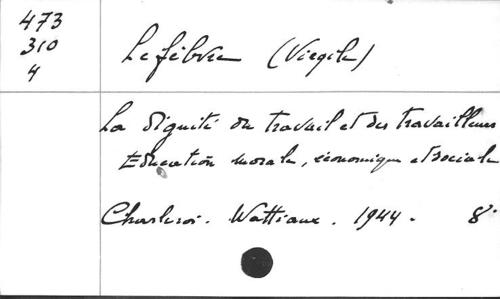 473
310
4
Lefèbvre (Virgile)
La dignité du travail et des travailleurs
Education morale, économique et sociale
Charleroi. Wattiaux. 1944. 8°